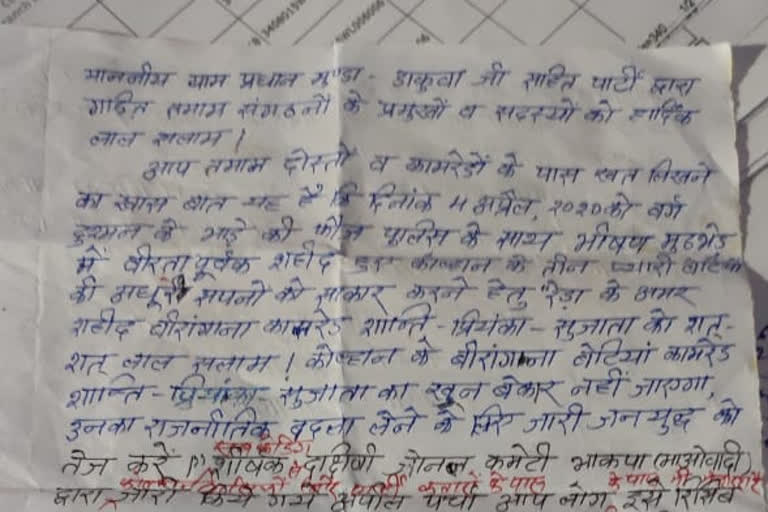 माननीय ग्राम प्रधान मुण्डा - डाकुवा जी सहित पार्टी द्वारा
गठित तमाम संगठनों के प्रमुखों व सदस्यों को हार्दिक
लाल सलाम!
आप तमाम दोस्तों व कामरेडों के पास खत लिखने
का खास बात यह है कि दिनांक 4 अप्रैल, 2020 को वर्ग
दुश्मन के भाड़े की फौज पुलिस के साथ भीषण मुठभेड़
में वीरता पूर्वक शहीद हुए कोल्हान के तीन प्यारी
की अधूरी सपनों को साकार करने हेतु के अमर
शहीद वीरांगना कामरेड शान्ति - प्रियंका - सुजाता को शत्-
शत् लाल सलाम! कोल्हान के वीरांगना बेटियां कामरेड
शान्ति - प्रियंका - सुजाता का खून बेकार नहीं जाएगा,
उनका राजनीतिक बदला लेने के लिए जारी जनयुद्ध को
तेज करें!" शीर्षक से दक्षिणी जोनल कमेटी भाकपा (माओवादी)
द्वारा जारी किये गये अपील पर्चा आप लोग इसे रिसिव